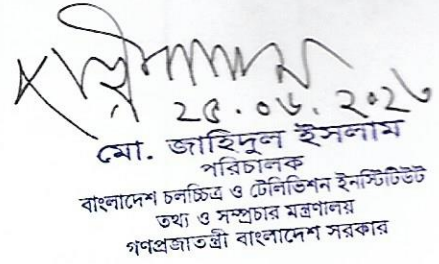 ২৫.০৬.২০২৬
মো. জাহিদুল ইসলাম
পরিচালক
বাংলাদেশ চলচ্চিত্র ও টেলিভিশন ইনস্টিটিউট
তথ্য ও সম্প্রচার মন্ত্রণালয়
গণপ্রজাতন্ত্রী বাংলাদেশ সরকার